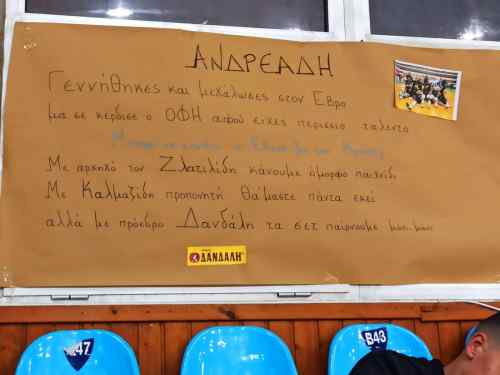 ΑΝΔΡΕΑΔΗ
Γεννήθηκες και μεγάλωσες στον Έβρο
μα σε κέρδισε ο ΟΦΗ αφού είχες περίσσιο ταλέντο
Με αρχηγό τον Ζλατιλίδη κάνουμε όμορφο παιχνίδι
Με Καλμαζίδη προπονητή θα'μαστε πάντα εκεί
αλλά με πρόεδρο Δανδάλη τα σετ παίρνουμε μάνι-μάνι
ΔΑΝΔΑΛΗ
Β47
Β43